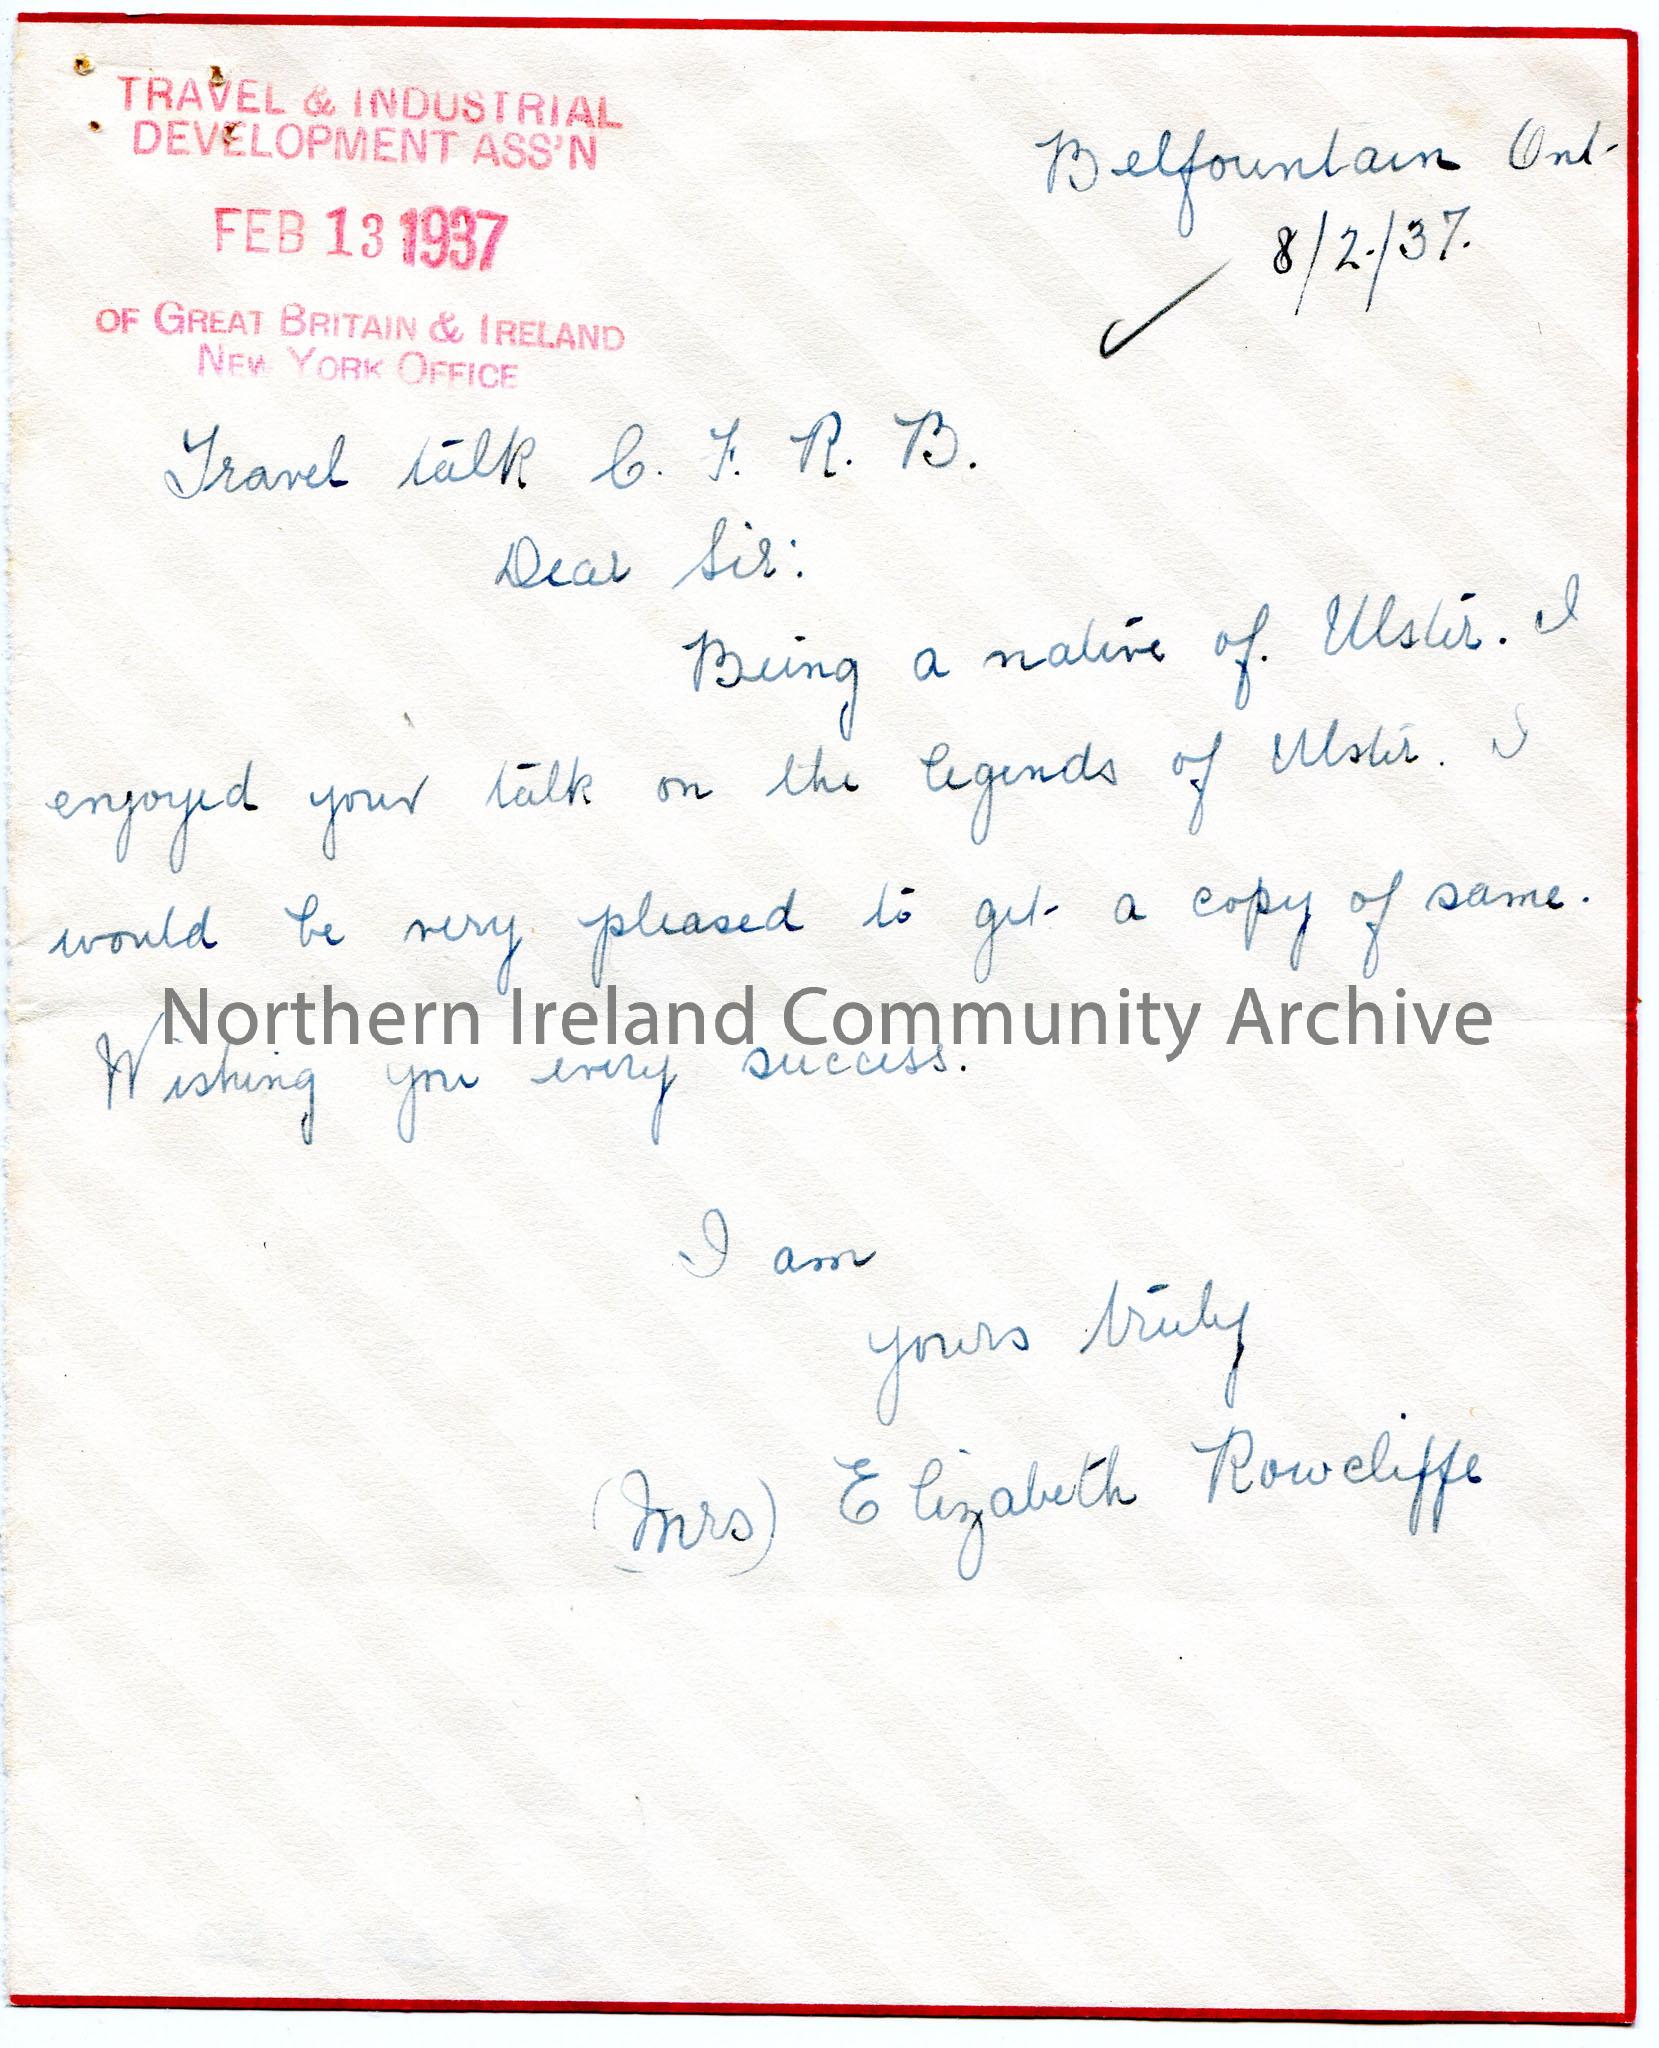 TRAVEL & INDUSTRIAL
DEVELOPMENT ASS'N
FEB 13 1937
OF GREAT BRITAIN & IRELAND
NEW YORK OFFICE
Belfountain Ont-
8/2./37.
Travel talk C. F. R. B.
Dear Sir:
Being a native of. Ulster. I
enjoyed your talk on the legends of Ulster. I
would be very pleased to get a copy of same.
Northern Ireland Community Archive
Wishing you every success.
I am
yours truly
(Mrs) Elizabeth Rowcliffe